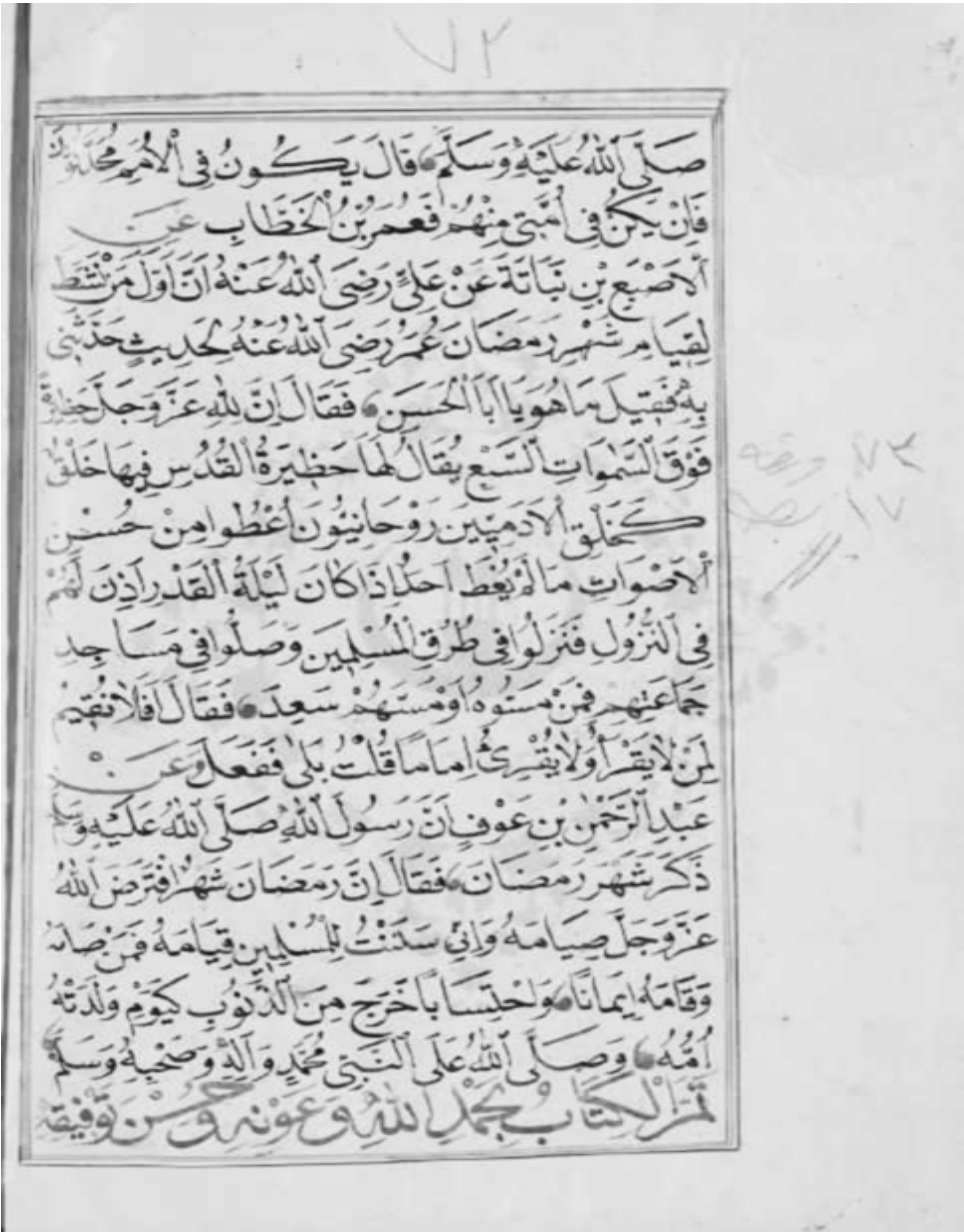 ٧٢
صَلَّى ٱللهُ عَلَيْهِ وَسَلَّمَ قَالَ يَكُونُ فِى ٱلْأُمَمِ مُحَدَّثُونَ
فَاِنْ يَكُنْ فِى اُمَّتِى مِنْهُمْ فَعُمَرُ بْنُ ٱلْخَطَّابِ عَنِ
ٱلْاَصْبَعِ بْنِ نَبَاتَةَ عَنْ عَلِىٍّ رَضِىَ ٱللهُ عَنْهُ اَنَّ اَوَّلَ مَنْ نَشَطَ
لِقِيَامِ شَهْرِ رَمَضَانَ عُمَرُ رَضِىَ ٱللهُ عَنْهُ لِحَدِيثٍ حَدَّثَنِى
بِهِ فَقِيلَ مَا هُوَ يَا اَبَا ٱلْحَسَنِ فَقَالَ اِنَّ لِلهِ عَزَّ وَجَلَّ حَظِيرَةً
فَوْقَ ٱلسَّمٰوَاتِ ٱلسَّبْعِ يُقَالُ لَهَا حَظِيرَةُ ٱلْقُدُسِ فِيهَا خَلْقٌ
كَخَلْقِ ٱلْاٰدَمِيِّينَ رَوْحَانِيُّونَ اُعْطُوا مِنْ حُسْنِ
ٱلْاَصْوَاتِ مَا لَمْ يُعْطَ اَحَدٌ اِذَا كَانَ لَيْلَةُ ٱلْقَدْرِ اَذِنَ لَهُمْ
فِى ٱلنُّزُولِ فَنَزَلُوا فِى طُرُقِ ٱلْمُسْلِمِينَ وَصَلُّوا فِى مَسَاجِدِ
جَمَاعَتِهِمْ فَمَنْ مَسُّوهُ اَوْ مَسَّهُمْ سَعِدَ فَقَالَ اَفَلَا نُقِيمُ
لِمَنْ لَا يَقْرَاُ وَلَا يُقْرِئُ اِمَامًا قُلْتُ بَلٰى فَفَعَلَ وَعَنْ
عَبْدِ ٱلرَّحْمٰنِ بْنِ عَوْفٍ اَنَّ رَسُولَ ٱللهِ صَلَّى ٱللهُ عَلَيْهِ وَسَلَّمَ
ذَكَرَ شَهْرَ رَمَضَانَ فَقَالَ اِنَّ رَمَضَانَ شَهْرٌ افْتَرَضَ ٱللهُ
عَزَّ وَجَلَّ صِيَامَهُ وَاِنِّى سَنَنْتُ لِلْمُسْلِمِينَ قِيَامَهُ فَمَنْ صَامَهُ
وَقَامَهُ اِيمَانًا وَاحْتِسَابًا خَرَجَ مِنَ ٱلذُّنُوبِ كَيَوْمِ وَلَدَتْهُ
اُمُّهُ وَصَلَّى ٱللهُ عَلَى ٱلنَّبِىِّ مُحَمَّدٍ وَاٰلِهِ وَصَحْبِهِ وَسَلَّمَ
تَمَّ ٱلْكِتَابُ بِحَمْدِ ٱللهِ وَعَوْنِهِ وَحُسْنِ تَوْفِيقِهِ
٧٣ ورقه
١٧